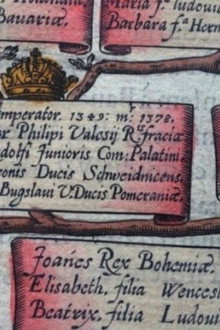 Bavariæ.
Maria f.ª ludoui
Barbara f.ª Her
mperator. 1349: m: 1378.
ar Philipi Valosij R:fraciæ
dolfi Junioris Com: Palatini
ronis Ducis Schweidnicens
Bugslaui V.Ducis Pomeraniæ.
Joānes Rex Bohemiæ
Elisabeth. filia Wences
Beatrix. filia Ludoui